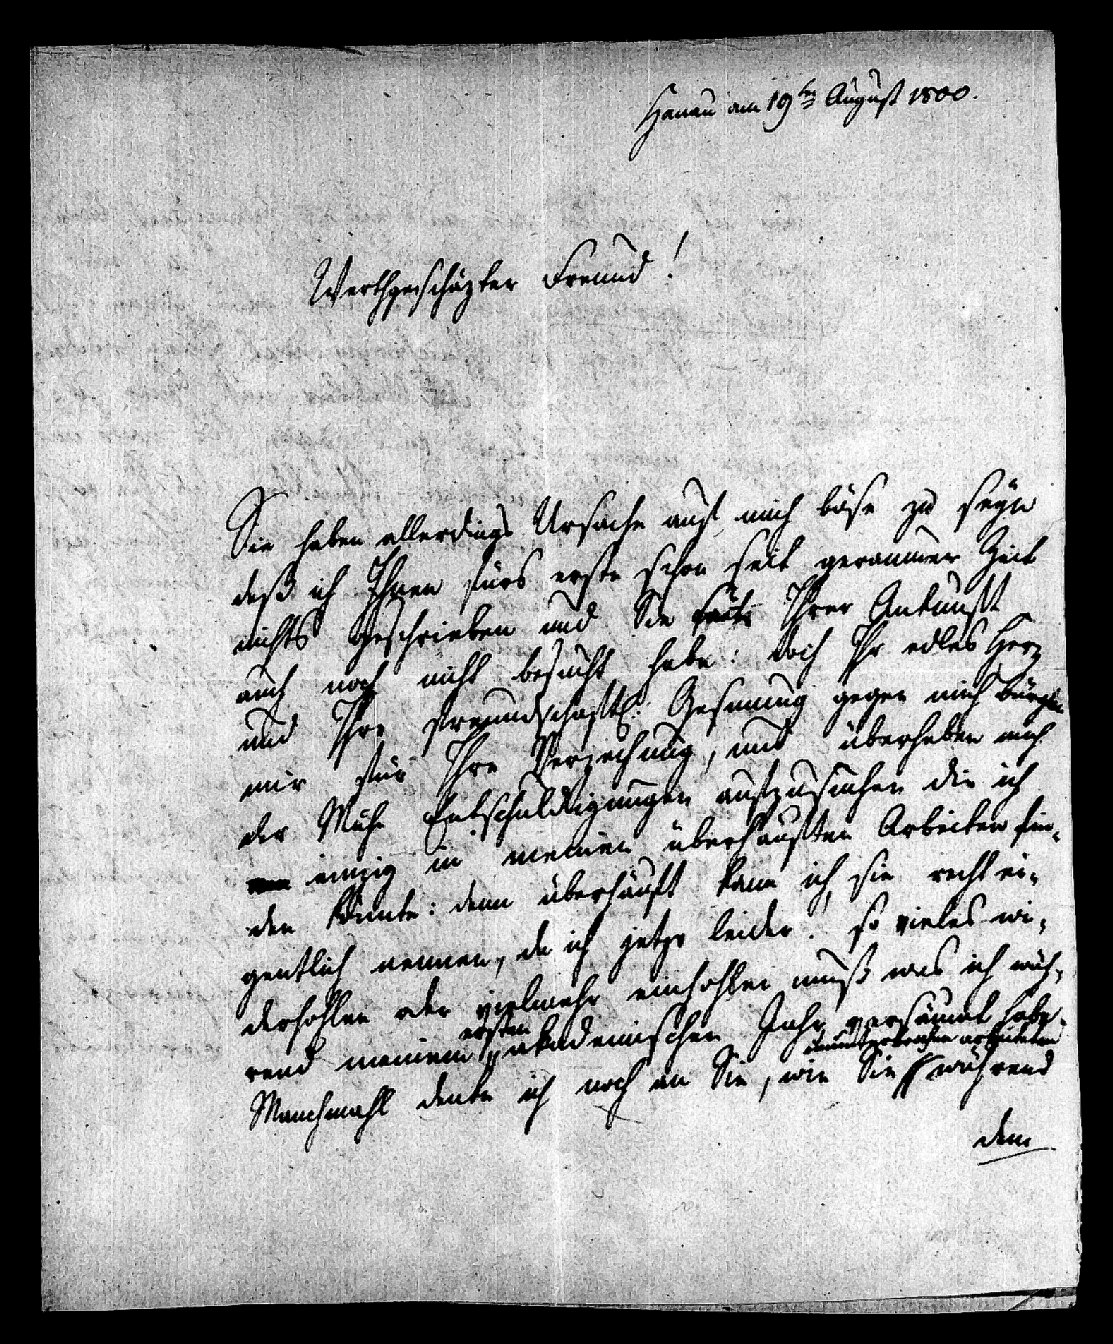 Hanau am 19ten August 1800.
Werthgeschäzter Freund!
Sie haben allerdings Ursache auf mich böse zu seyn
daß ich Ihnen fürs erste schon seit geraumer Zeit
nichts geschrieben und Sie seit Ihrer Ankunft
auch noch nicht besucht habe: doch Ihr edles Herz
und Ihre freundschaftl: Gesinnung gegen mich bürgen
mir für Ihre Verzeihung, und überheben mich
der Mühe Entschuldigungen aufzusuchen die ich
einzig in meinen überhäuften Arbeiten fin-
den könnte: denn überhäuft kann ich sie recht ei-
gentlich nennen, da ich jetzo leider! so vieles wi-
derhohlen oder vielmehr einhohlen muß was ich wäh-
rend meinem ersten akademischen Jahr versäumt habe.
Manchmahl denke ich noch an Sie, wie Sie ununterbrochen arbeiteten während
dem